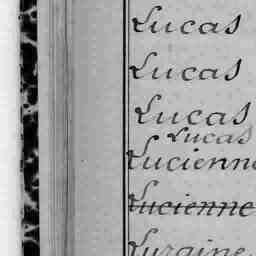 Lucas
Lucas
Lucas
Lucas
Lucienne
Lucienne